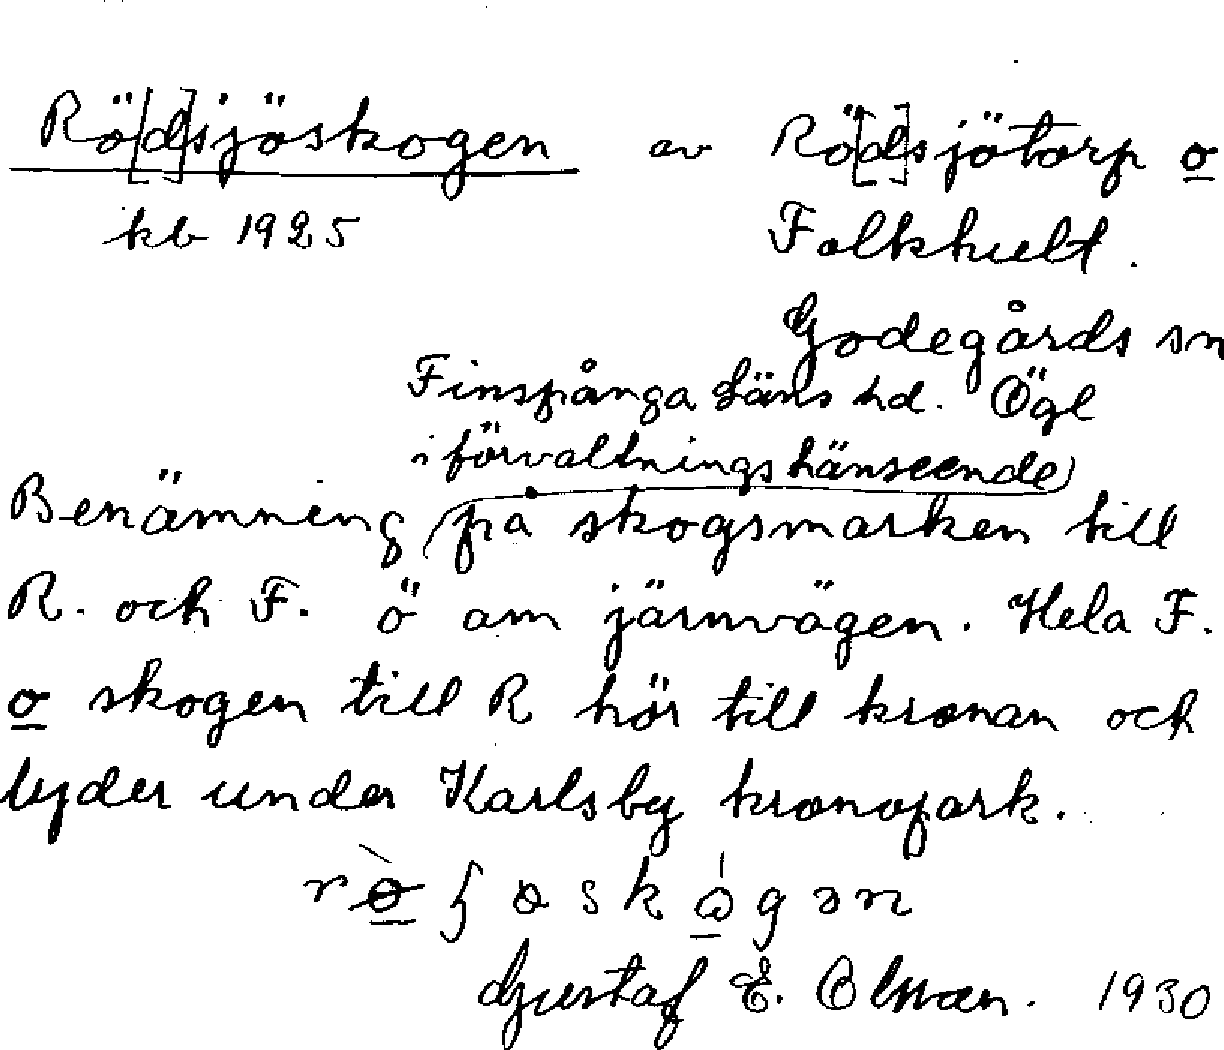 Rö[d]sjöskogen av Rö[d]sjötorp o
kb 1925 Folkhult.
Godegårds sn
Finspånga läns hd. Ögl
i förvaltningshänseende
Benämning på skogsmarken till
R. och F. ö om järnvägen. Hela F.
o skogen till R hör till kronan och
lyder under Karlsby kronopark.
Gustaf E. Olsson. 1930